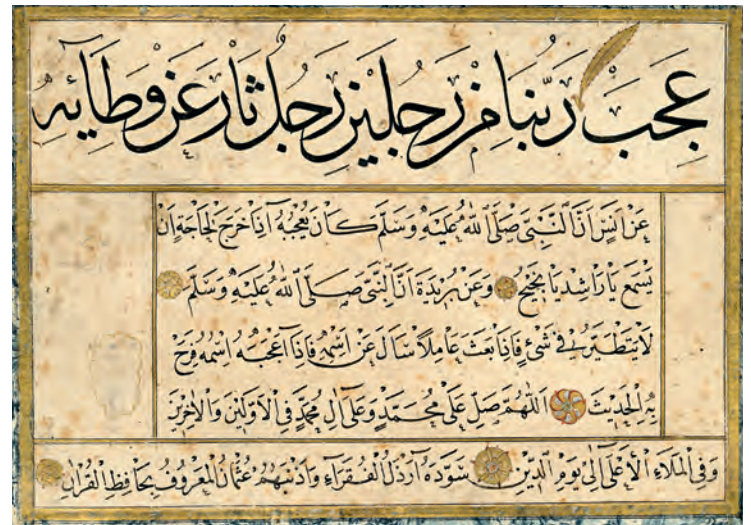 عَجِبَ رَبُّنَا مِنْ رَجُلَيْنِ رَجُلٌ ثَارَ عَنْ وَطَائِهِ
عَنْ اَنَسٍ اَنَّ النَّبِىَّ صَلَّى اللّٰهُ عَلَيْهِ وَسَلَّمَ كَانَ يُعْجِبُهُ اِذَا خَرَجَ لِحَاجَةٍ اَنْ
يَسْمَعَ يَا رَاشِدُ يَا نَجِيحُ وَعَنْ بُرَيْدَةَ اَنَّ النَّبِىَّ صَلَّى اللّٰهُ عَلَيْهِ وَسَلَّمَ
لَا يَتَطَيَّرُ فِى شَىْءٍ فَاِذَا بَعَثَ عَامِلًا سَاَلَ عَنْ اسْمِهِ فَاِذَا اَعْجَبَهُ اسْمُهُ فَرِحَ
بِهِ الْحَدِيثَ اَللّٰهُمَّ صَلِّ عَلَى مُحَمَّدٍ وَعَلَى اٰلِ مُحَمَّدٍ فِى الْاَوَّلِينَ وَالْاٰخِرِينَ
وَفِى الْمَلَاءِ الْاَعْلَى اِلَى يَوْمِ الدِّينِ سَوَّدَهُ اَرْذَلُ الْفُقَرَاءِ وَاَذْنَبُهُمْ عُثْمَانُ الْمَعْرُوفُ بِحَافِظِ الْقُرْاٰنِ